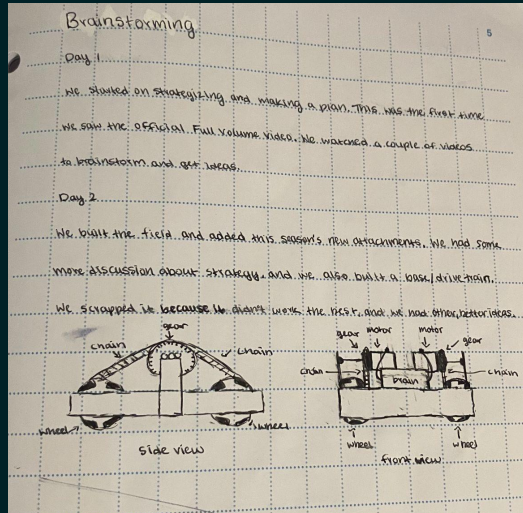 Brainstorming
5
Day 1
We started on strategizing and making a plan. This was the first time
we saw the official Full Volume video. We watched a couple of videos
to brainstorm and get ideas.
Day 2
We built the field and added this season's new attachments. We had some
more discussion about strategy, and we also built a base/drivetrain.
We scrapped it because it didn't work the best, and we had other, better ideas.
gear
chain
chain
wheel
wheel
side view
gear motor motor gear
chain brain chain
wheel wheel
front view